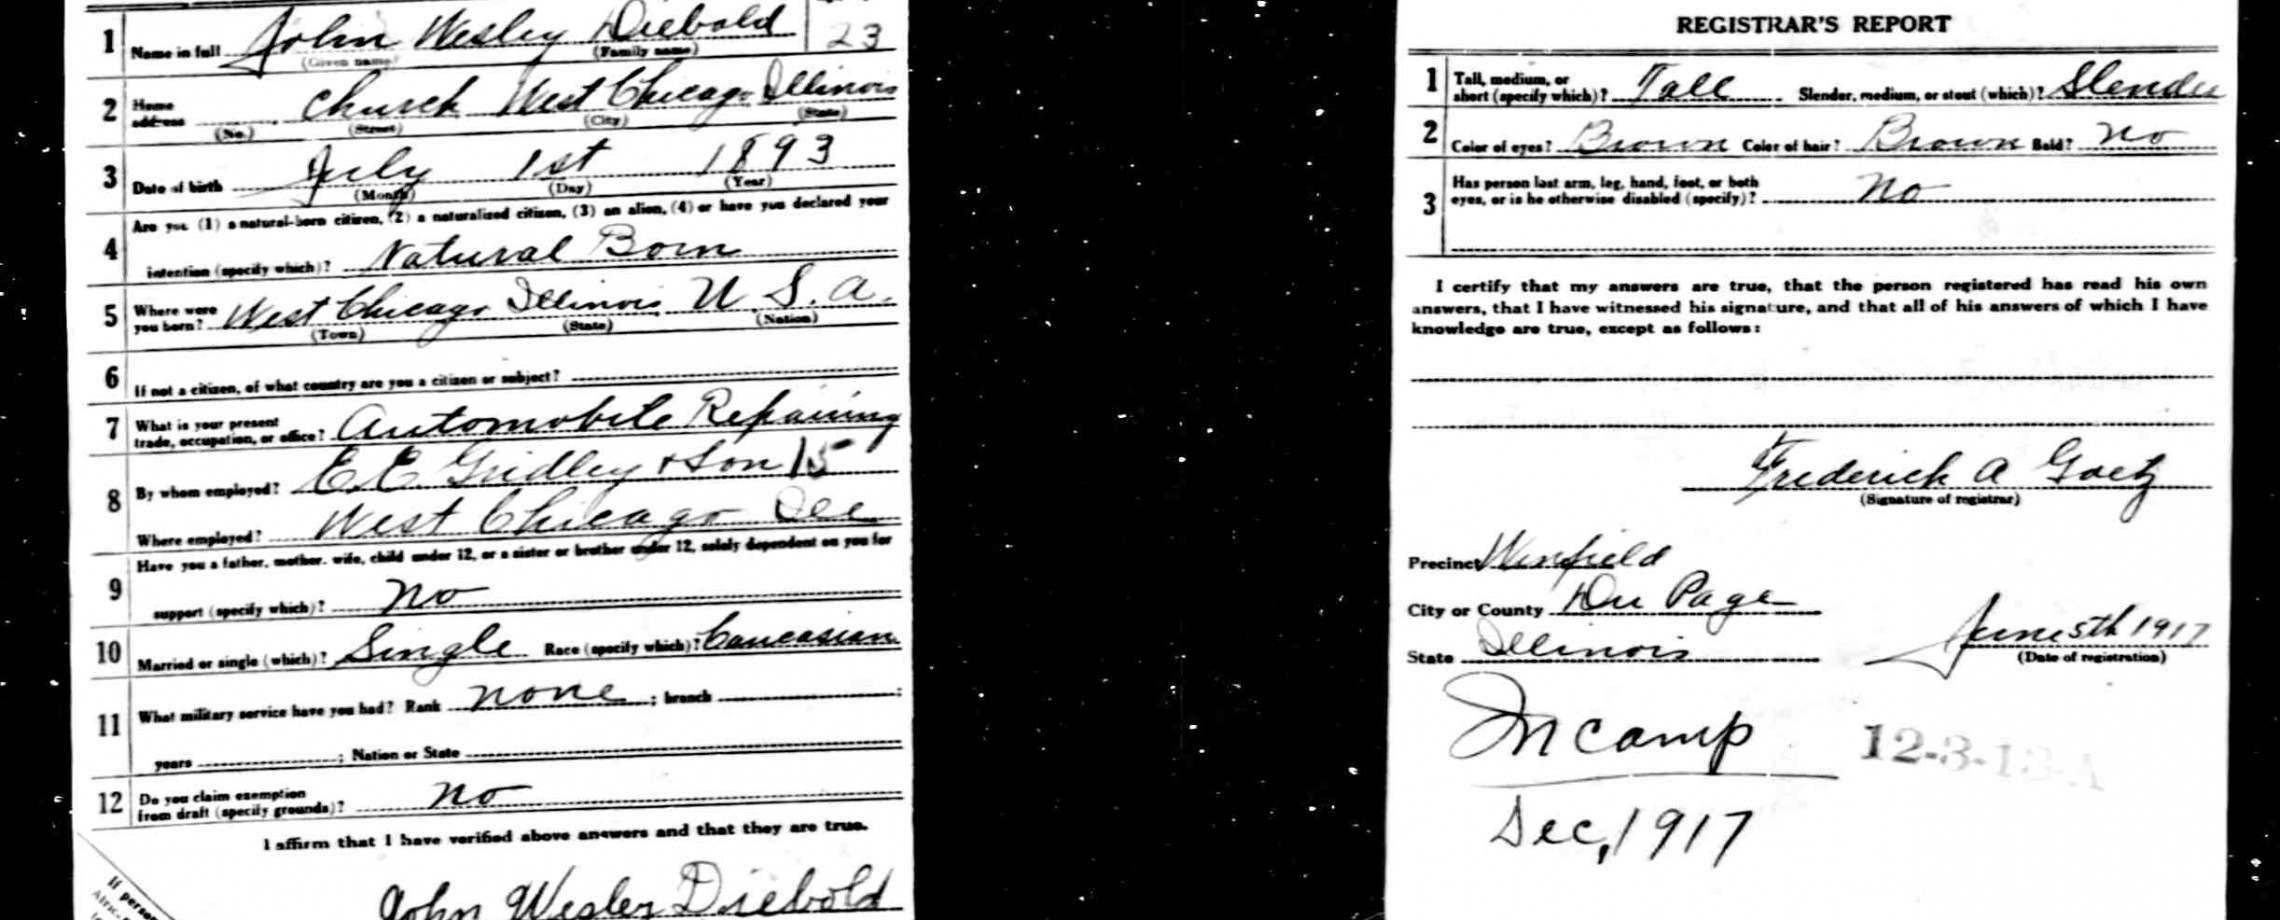 1 Name in full John Wesley Diebold 23
(Given name) (Family name)
2 Home address Church West Chicago Illinois
(No.) (Street) (City) (State)
3 Date of birth July 1st 1893
(Month) (Day) (Year)
4 Are you (1) a natural-born citizen, (2) a naturalized citizen, (3) an alien, (4) or have you declared your
intention (specify which)? Natural Born
5 Where were you born? West Chicago Illinois U. S. A.
(Town) (State) (Nation)
6 If not a citizen, of what country are you a citizen or subject?
7 What is your present
trade, occupation, or office? Automobile Repairing
8 By whom employed? E E Gridley & Son 15
Where employed? West Chicago Ill
9 Have you a father, mother, wife, child under 12, or a sister or brother under 12, solely dependent on you for
support (specify which)? No
10 Married or single (which)? Single Race (specify which)? Caucasian
11 What military service have you had? Rank none ; branch ;
years ; Nation or State
12 Do you claim exemption
from draft (specify grounds)? no
I affirm that I have verified above answers and that they are true.
John Wesley Diebold
If person
REGISTRAR'S REPORT
1 Tall, medium, or
short (specify which)? Tall Slender, medium, or stout (which)? Slender
2 Color of eyes? Brown Color of hair? Brown Bald? no
3 Has person lost arm, leg, hand, foot, or both
eyes, or is he otherwise disabled (specify)? no
I certify that my answers are true, that the person registered has read his own
answers, that I have witnessed his signature, and that all of his answers of which I have
knowledge are true, except as follows:
Frederick A Goetz
(Signature of registrar)
Precinct Winfield
City or County Du Page
State Illinois
June 5th 1917
(Date of registration)
In camp
12-3-13-A
Dec, 1917